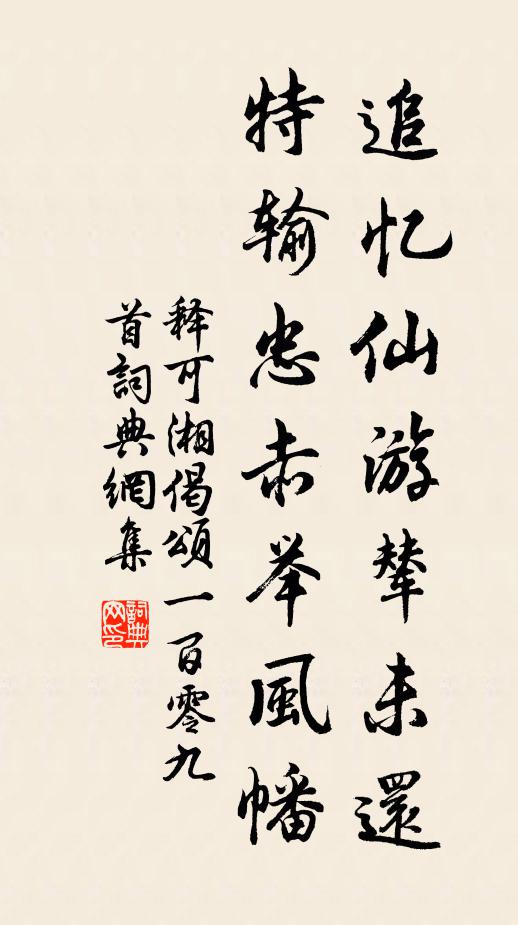 追忆仙游辇未還
特输忠赤举風幡
释可湘偈頌一百零九
首詞典網集
詞典
网印